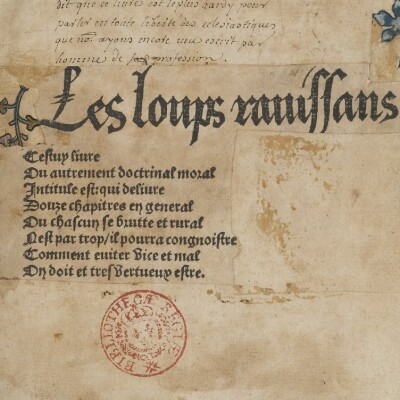 dit que ce livre est le plus hardy pour
parler en toute liberté des eclesiastiques
que nous ayons encore veu escrit par
homme de sa profession.
Les loups rauissans
Cestuy liure
Ou autrement doctrinal moral
Intitule est: qui deliure
Douze chapitres en general
Ou chascun se brutte et rural
Nest par trop/ il pourra congnoistre
Comment euiter vice et mal
On doit et tres vertueux estre.
BIBLIOTHECÆ REGIÆ